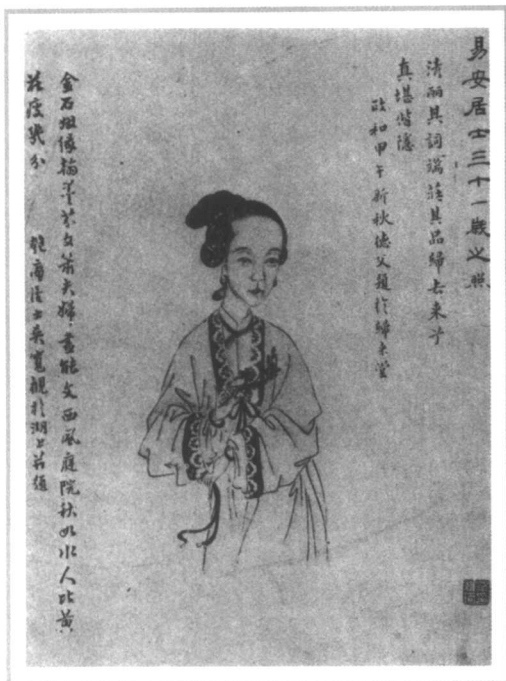 易安居士三十一歲之照
清丽其詞端莊其品歸去来兮
真堪偕隱
政和甲午新秋德父題於歸来堂
金石姻緣翰墨芬文簫夫婦盡能文西風庭院秋如水人比黄
花瘦幾分
吳寬觀於湖上并題